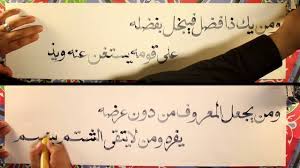 ومن يك ذا فضل فيبخل بفضله
على قومه يستغن عنه ويذ
ومن يجعل المعروف من دون عرضه
يفره ومن لا يتقى الشتم